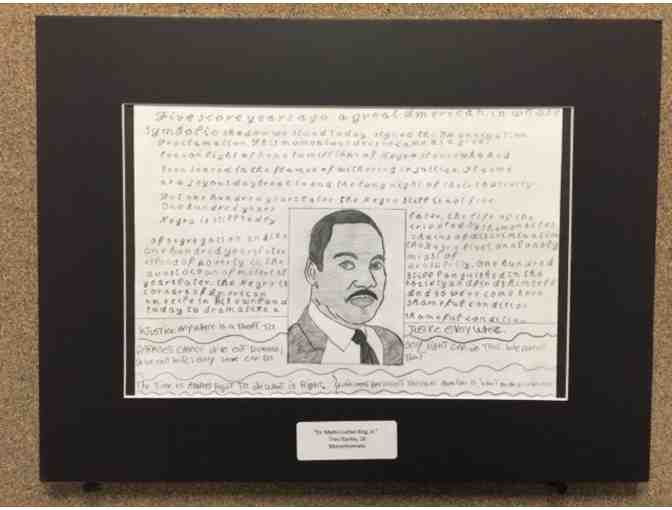 Five score years ago a great American in whose
symbolic shadow we stand today signed the Emancipation
Proclamation. This momentous decree came as a great
beacon light of hope to millions of Negro slaves who had
been seared in the flames of withering injustice. It came
as a joyous daybreak to end the long night of their captivity.
But one hundred years later the Negro still is not free
One hundred years later, the life of the
Negro is still sadly crippled by the manacles
of segregation and the chains of discrimination
one hundred years later the Negro lives on a lonely
island of poverty in the midst of
a vast ocean of material prosperity. One hundred
years later the Negro is still languished in the
corners of American society and finds himself
an exile in his own land and so we've come here
today to dramatize a shameful condition
shameful condition.
INJUSTICE anywhere is a Threat To JUSTICE EVERY Where
DARKNESS CANNOT drive out Darkness, only LIGHT can do That hate cannot
drive out hate; only Love can do That
The Time is Always Right To do what is Right.
"Dr. Martin Luther King Jr."